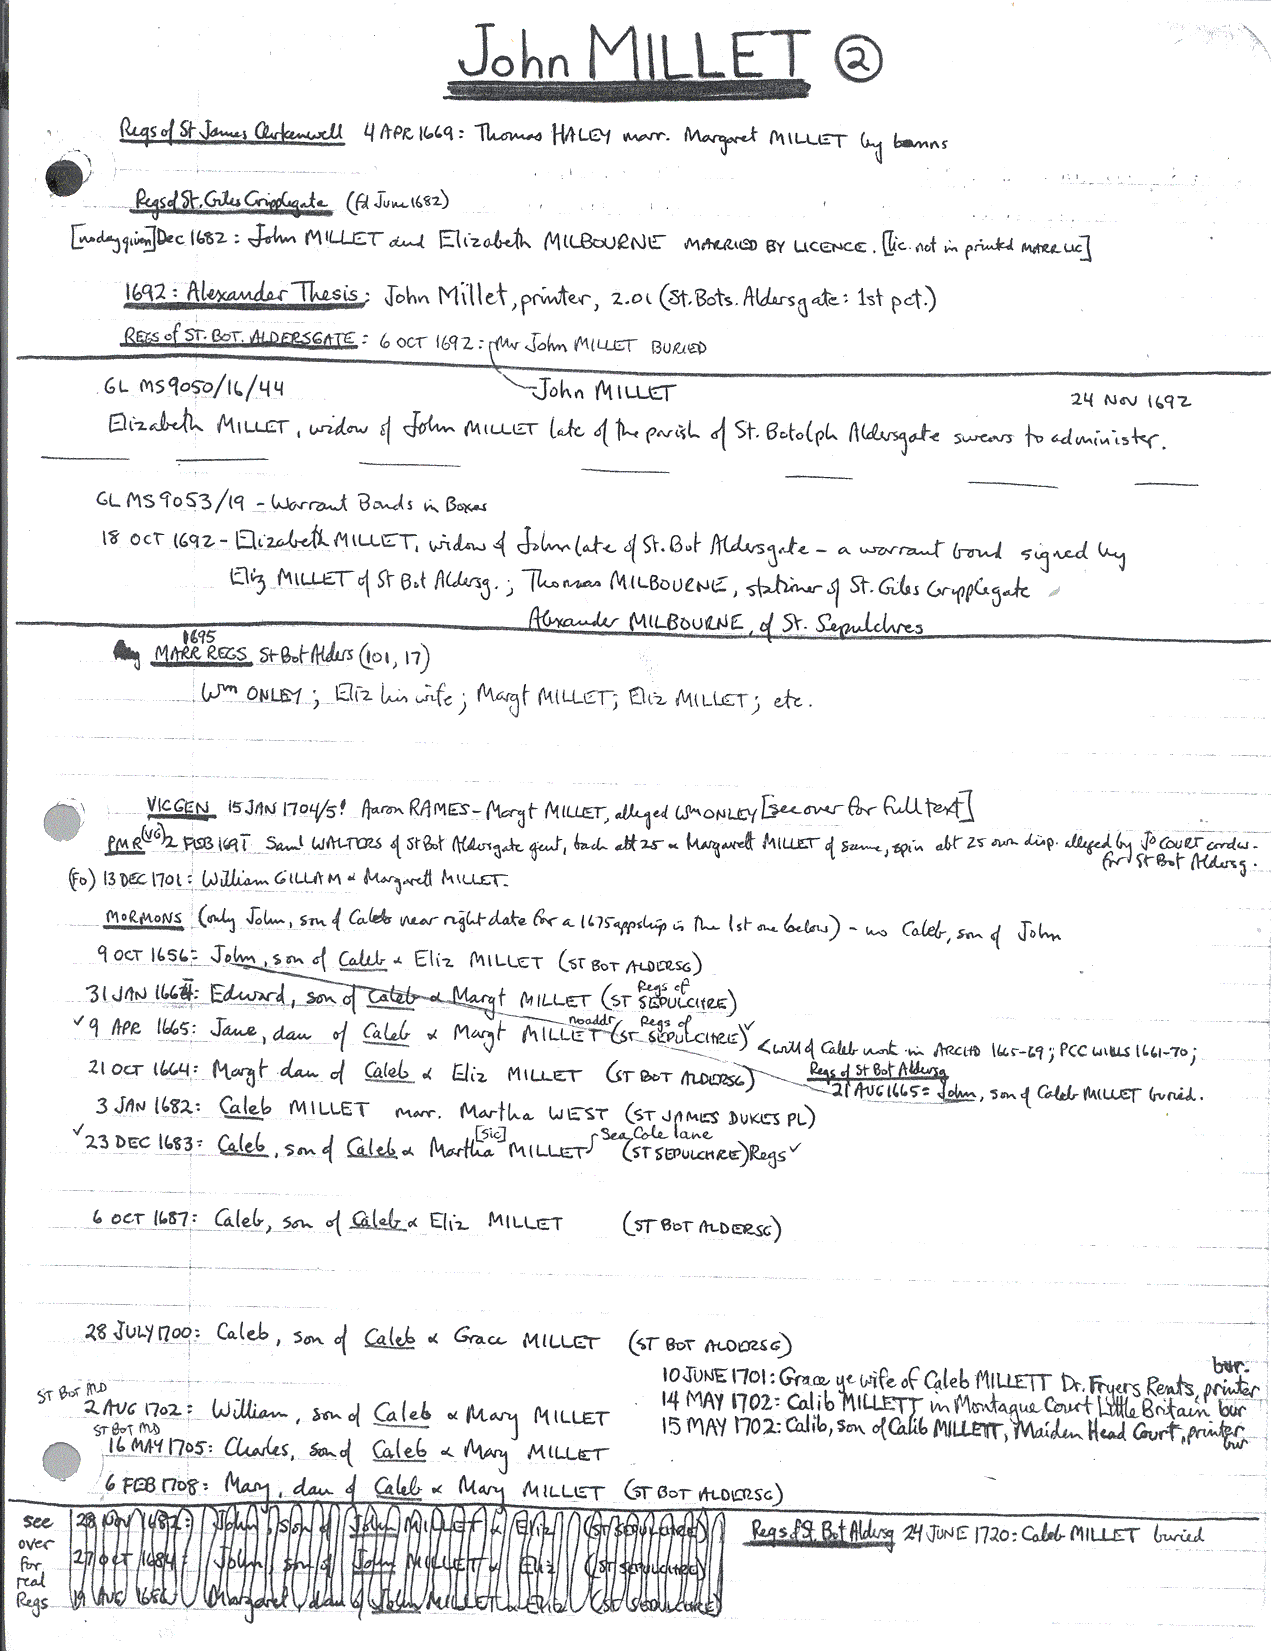 John MILLET ②
Regs of St James Clerkenwell 4 APR 1669: Thomas HALEY marr. Margaret MILLET by banns
Regs of St. Giles Cripplegate (fd June 1682)
[no day given] Dec 1682: John MILLET and Elizabeth MILBOURNE MARRIED BY LICENCE. [lic. not in printed MARR LIC]
1692: Alexander Thesis: John Millet, printer, 2.01 (St. Bots. Aldersgate: 1st pct.)
REGS of ST. BOT. ALDERSGATE: 6 OCT 1692: Mr John MILLET BURIED
GL MS 9050/16/44 John MILLET 24 NOV 1692
Elizabeth MILLET, widow of John MILLET late of the parish of St. Botolph Aldersgate swears to administer.
GL MS 9053/19 - Warrant Bonds in Boxes
18 OCT 1692 - Elizabeth MILLET, widow of John late of St. Bot Aldersgate - a warrant bond signed by
Eliz MILLET of St Bot Aldersg.; Thomas MILBOURNE, stationer of St. Giles Crypplegate
Alexander MILBOURNE, of St. Sepulchres
1695
MARR REGS St Bot Alders (101, 17)
Wm ONLEY; Eliz his wife; Margt MILLET; Eliz MILLET; etc.
VIC GEN 15 JAN 1704/5: Aaron RAMES - Margt MILLET, alleged Wm ONLEY [see over for full text]
PMR (VG) 2 FEB 169 Saml WALTERS of St Bot Aldersgate gent, bach abt 25 & Margarett MILLET of same, spin abt 25 own disp. alleged by Jo COURT cordw.
for St Bot Aldersg.
(Fo) 13 DEC 1701: William GILLAM & Margarett MILLET.
MORMONS (only John, son of Caleb near right date for a 1675 appship is the 1st one below) - no Caleb, son of John
9 OCT 1656: John, son of Caleb & Eliz MILLET (ST BOT ALDERSG)
31 JAN 166: Edward, son of Caleb & Margt MILLET (Regs of ST SEPULCHRE)
✓ 9 APR 1665: Jane, dau of Caleb & Margt MILLET no addr (Regs of ST SEPULCHRE) ✓ < will of Caleb not in ARCHD 1665-69; PCC WILLS 1661-70;
21 OCT 1664: Margt dau of Caleb & Eliz MILLET (ST BOT ALDERSG) Regs of St Bot Aldersg
21 AUG 1665: John, son of Caleb MILLET buried.
3 JAN 1682: Caleb MILLET marr. Martha WEST (ST JAMES DUKES PL)
✓ 23 DEC 1683: Caleb, son of Caleb & Martha [sic] MILLET Sea Cole lane (ST SEPULCHRE) Regs ✓
6 OCT 1687: Caleb, son of Caleb & Eliz MILLET (ST BOT ALDERSG)
28 JULY 1700: Caleb, son of Caleb & Grace MILLET (ST BOT ALDERSG)
10 JUNE 1701: Grace ye wife of Caleb MILLETT Dr. Fryers Rents, printer bur.
14 MAY 1702: Calib MILLETT in Montague Court Little Britain bur
15 MAY 1702: Calib, son of Calib MILLETT, Maiden Head Court, printer bur
ST BOT MD
2 AUG 1702: William, son of Caleb & Mary MILLET
ST BOT MD
16 MAY 1705: Charles, son of Caleb & Mary MILLET
6 FEB 1708: Mary, dau of Caleb & Mary MILLET (ST BOT ALDERSG)
see over for real Regs
28 NOV 1682: John, son of John MILLET & Eliz (ST SEPULCHRE)
27 OCT 1684: John, son of John MILLET & Eliz (ST SEPULCHRE)
19 AUG 1686: Margaret, dau of John MILLET & Eliz (ST SEPULCHRE)
Regs of St Bot Aldersg 24 JUNE 1720: Caleb MILLET buried